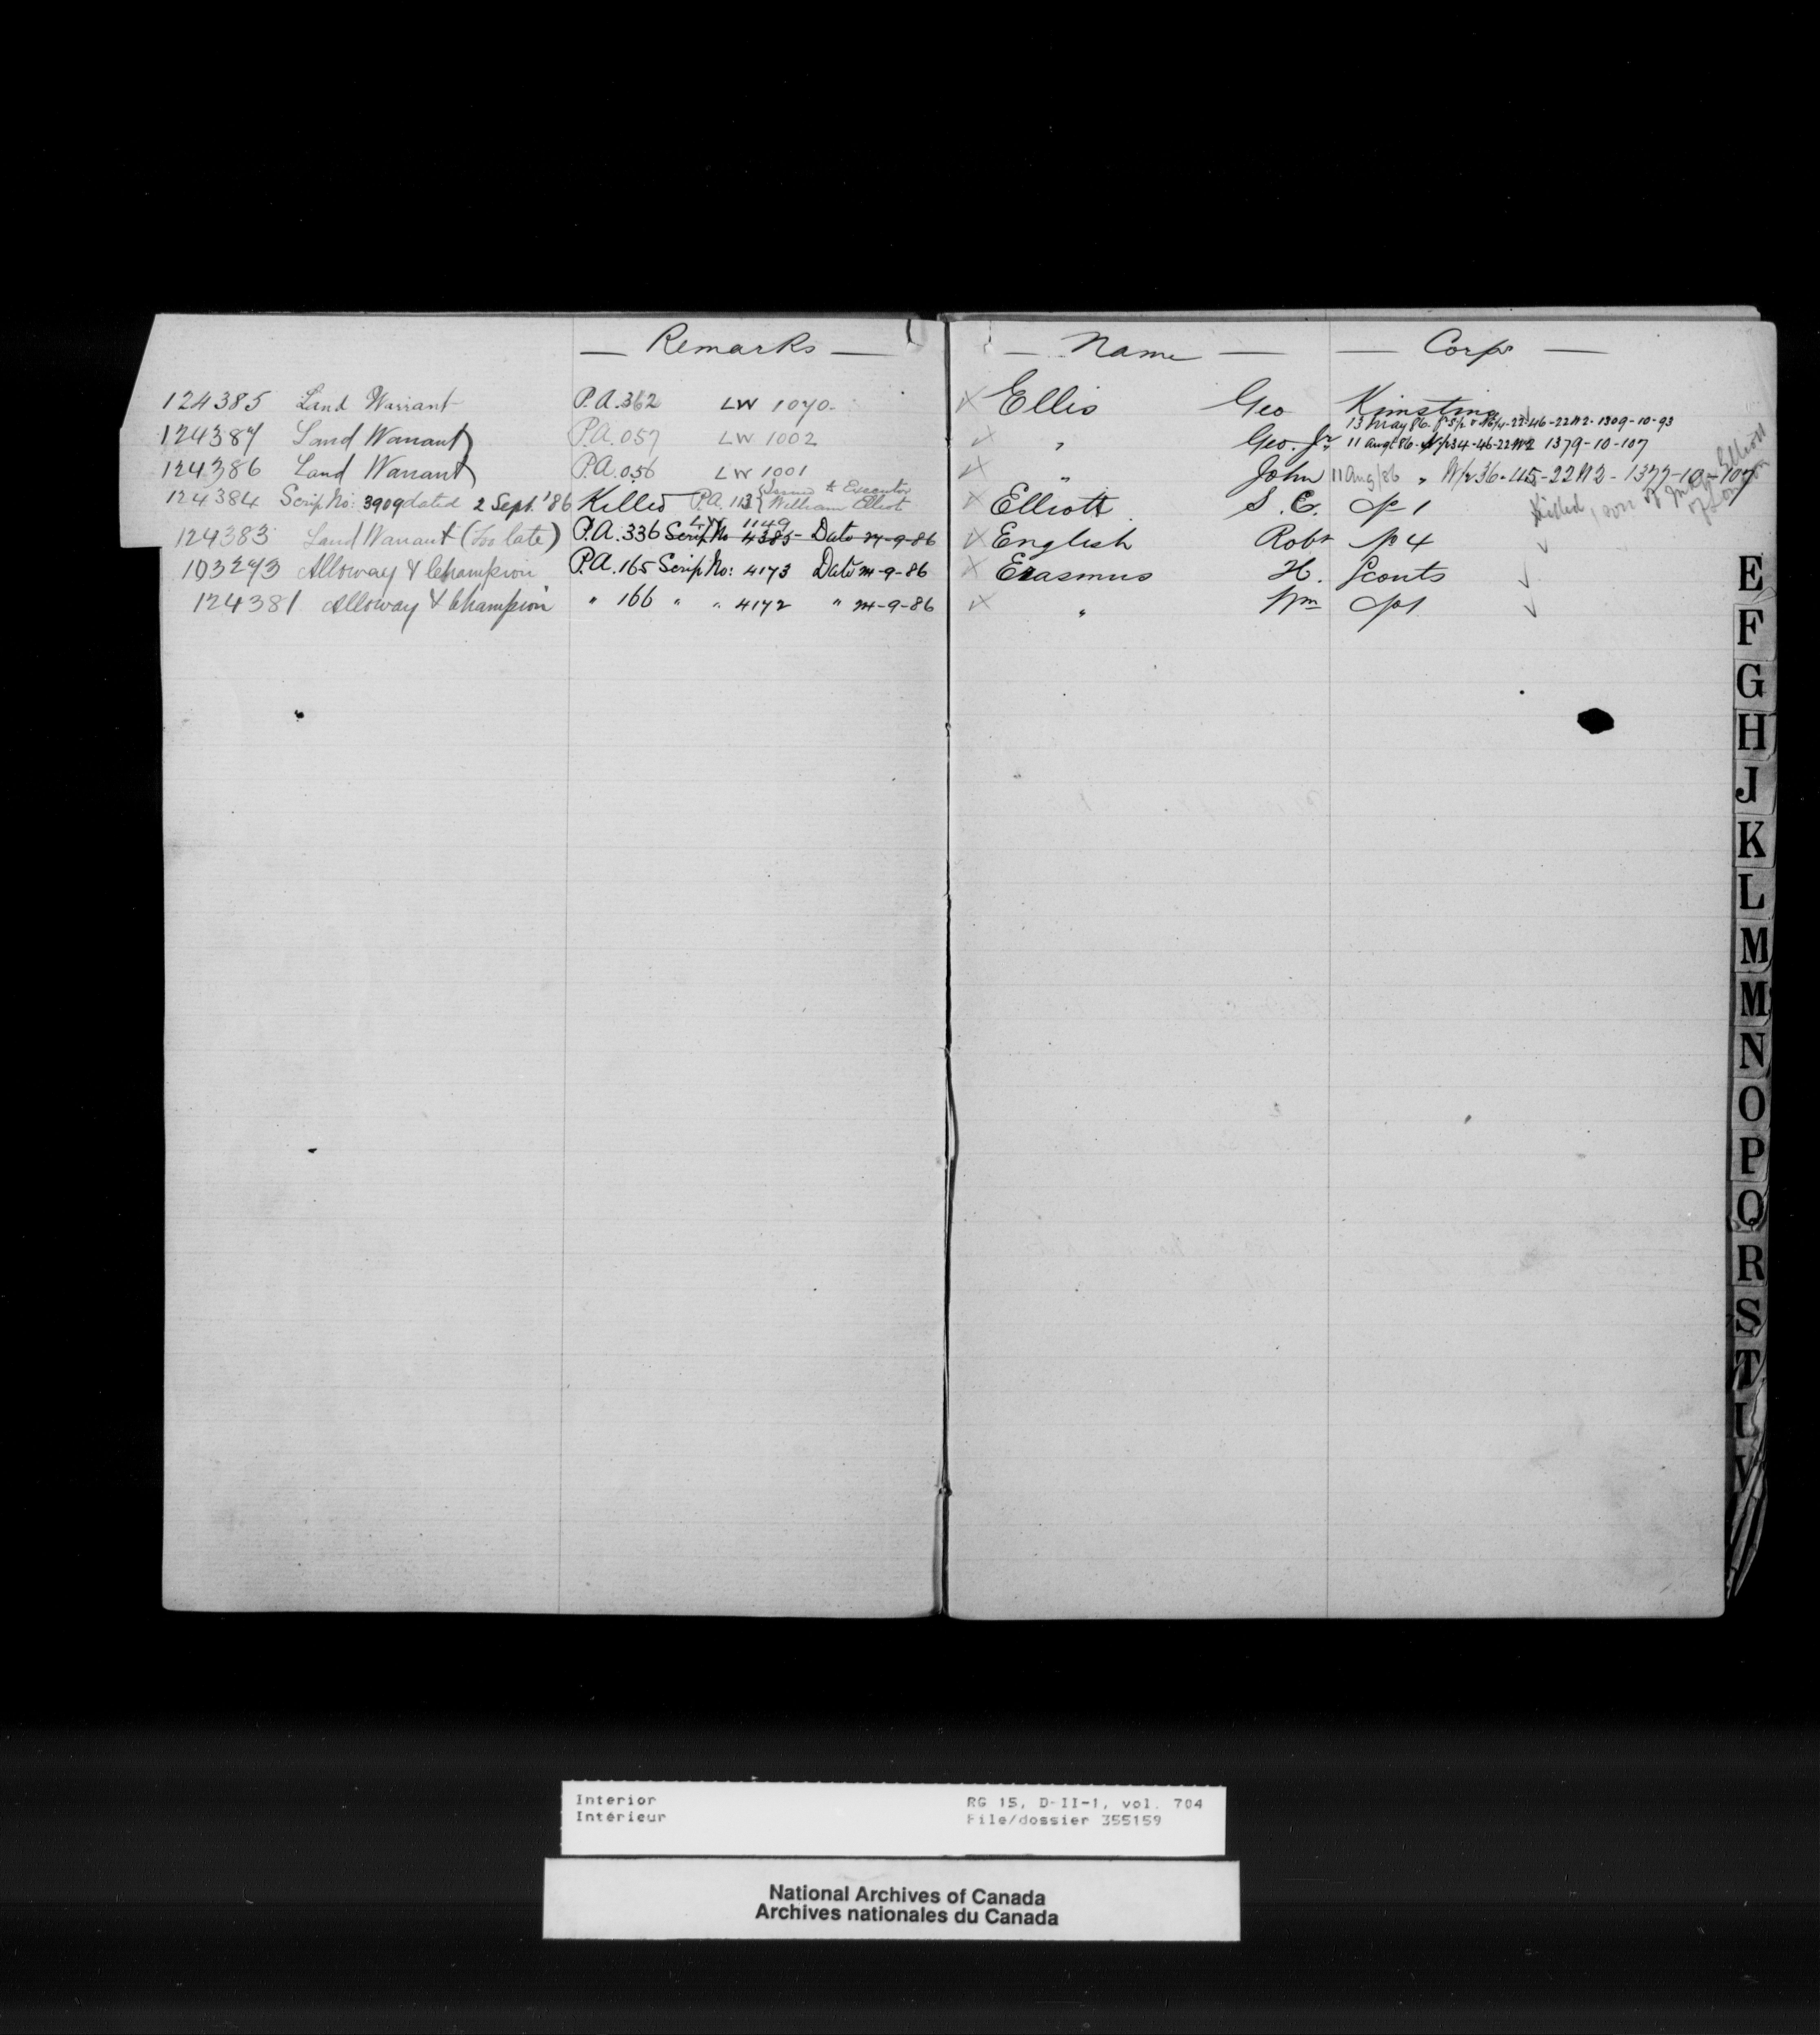 — Remarks —
124385 Land Warrant P.A. 362 LW 1070.
124387 Land Warrant P.A. 057 LW 1002
124386 Land Warrant P.A. 056 LW 1001
124384 Scrip No: 3909 dated 2 Sept. '86 Killed P.A. 113 { Issued to Executor
William Elliot
LW 1149
124383 Land Warrant (Too late) P.A. 336 Scrip No 4385 Date 24-9-86
103293 Alloway & Champion P.A. 165 Scrip No: 4173 Date 24-9-86
124381 Alloway & Champion " 166 " " 4172 " 24-9-86
— Name — — Corps —
Ellis Geo
13 May 86. 22-46-22W2-1309-10-93
" Geo. Jr 11 Augt 86. 34-46-22W2 1379-10-107
" John 11 Aug/86 " 36-45-22W2-1377-10-107
Elliott S. E. 1 Killed, son of Judge Elliott
of London
English Robt 4
Erasmus H. Scouts
" Wm 1
E
F
G
H
J
K
L
M
M
N
O
P
Q
R
S
T
Interior
Intérieur
RG 15, D-II-1, vol. 704
File/dossier 355159
National Archives of Canada
Archives nationales du Canada